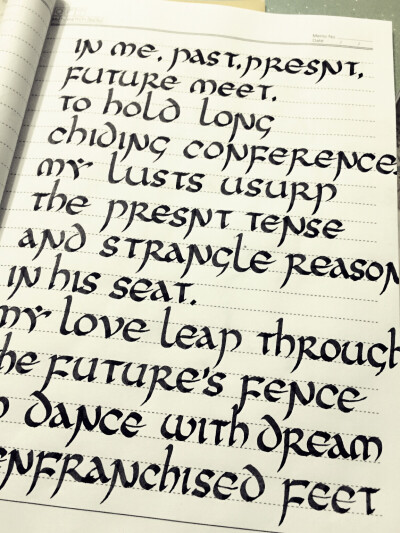 in me. past, presnt,
future meet.
to hold long
chiding conference.
my lusts usurp
the presnt tense
and strangle reason
in his seat.
my love leap through
he future's fence
dance with dream
enfranchised feet